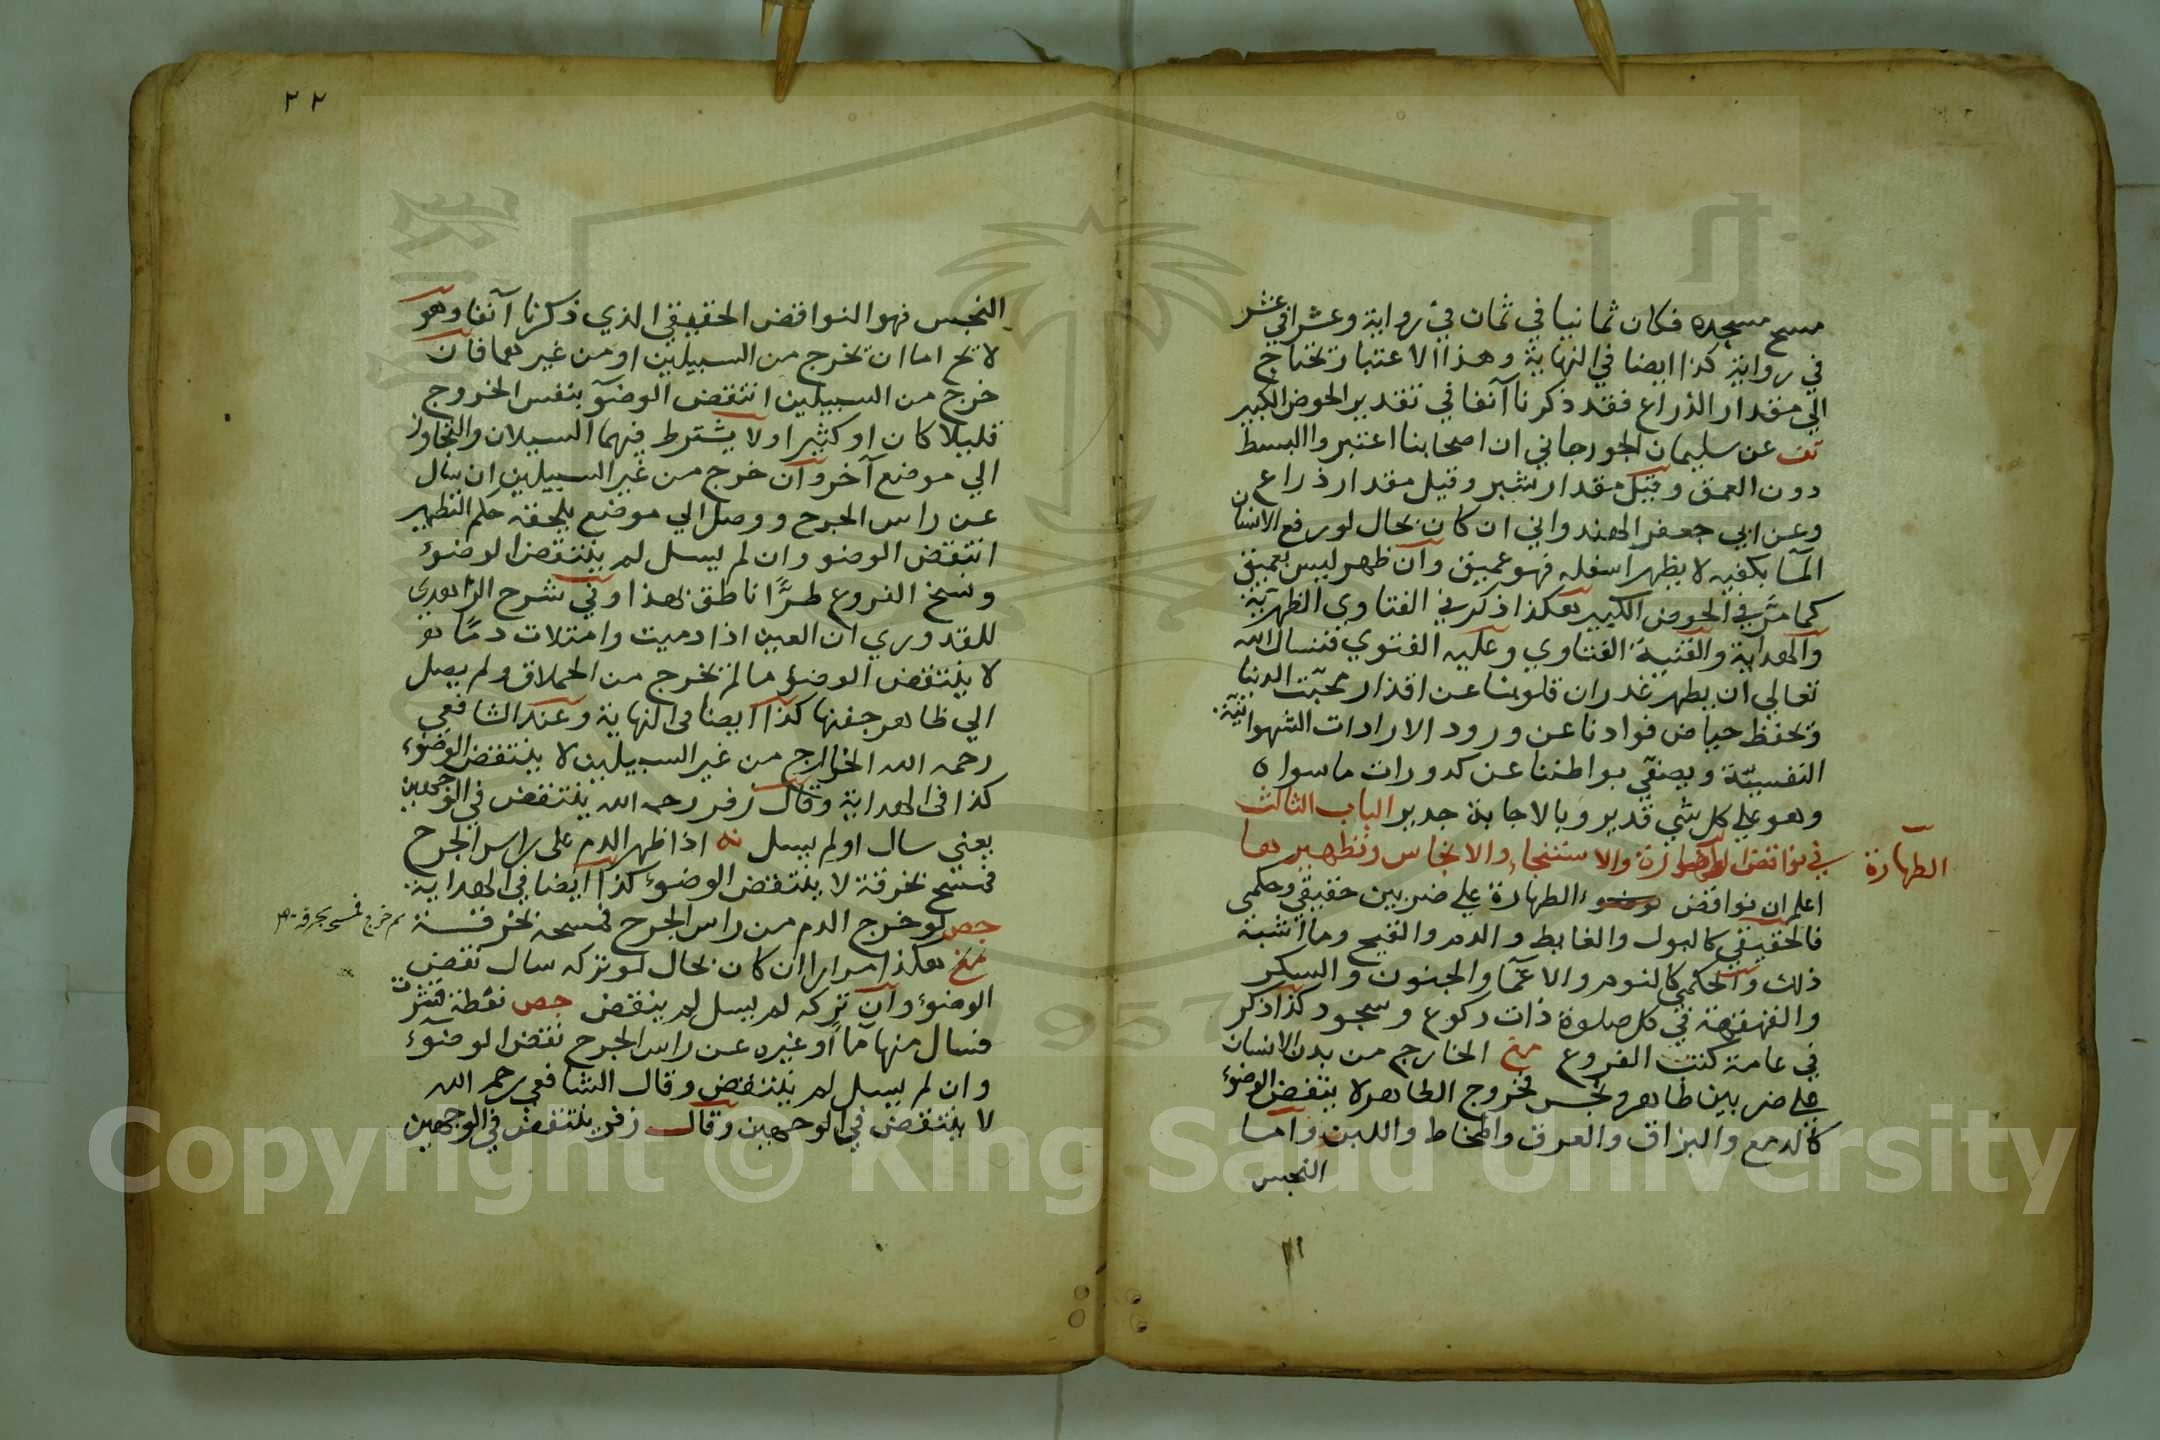 مسح مسجده فكان ثمانيا في ثمان في رواية وعشرا في عشر
في رواية كذا ايضا في النهاية وهذا الاعتبار تحتاج
الي مقدار الذراع فقد ذكرنا آنفا في تقدير الحوض الكبير
تف عن سليمان الجورجاني ان اصحابنا اعتبروا البسط
دون العمق وقيل مقدار شبر وقيل مقدار ذراع
وعن ابي جعفر الهندواني ان كان بحال لو رفع الانسان
المآ بكفيه لا يظهر اسفله فهو عميق وان ظهر ليس بعميق
كما مر في الحوض الكبير هكذا ذكر في الفتاوي الظهرية
والهداية والقنية الفتاوي وعليه الفتوي فنسال الله
تعالي ان يطهر غدران قلوبنا عن اقذار محبت الدنيا
وتحفظ حياض فوادنا عن ورود الارادات الشهوانية
النفسية ويصفي بواطننا عن كدورات ما سواه
وهو علي كل شي قدير وبالاجابة جدير الباب الثالث
في نواقض الطهارة والاستنجاء والانجاس وتطهيرها
الطهارة
اعلم ان نواقض الطهارة علي ضربين حقيقي وحكمي
فالحقيقي كالبول والغايط والدم والقيح وما اشبه
ذلك والحكمي كالنوم والاغما والجنون والسكر
والقهقهة في كل صلوة ذات ركوع وسجود كذا ذكر
في عامة كتب الفروع الخارج من بدن الانسان
علي ضربين طاهر ونجس فخروج الطاهر لا ينتقض الوضوء
كالدمع والبزاق والعرق والمخاط واللبن واما
النجس
٢٢
النجس فهو النواقض الحقيقي الذي ذكرنا آنفا وهو
لا يخ اما ان تخرج من السبيلين او من غيرهما فان
خرج من السبيلين انتقض الوضوء بنفس الخروج
قليلا كان او كثيرا ولا يشترط فيهما السيلان والتجاوز
الي موضع آخر وان خرج من غير السبيلين ان سال
عن راس الجرح ووصل الي موضع يلحقه حكم التطهير
انتقض الوضو وان لم يسل لم ينتقض الوضوء
ونسخ الفروع طرًّا ناطق بهذا وفي شرح الزاهدي
للقدوري ان العين اذا دميت وامتلات دمًا هو
لا ينتقض الوضؤ ما لم تخرج من الحملاق ولم يصل
الي ظاهر جفنها كذا ايضا في النهاية وعند الشافعي
رحمه الله الخارج من غير السبيلين لا ينتقض الوضوء
كذا في الهداية وقال زفر رحمه الله ينتقض في الوجهين
يعني سال او لم يسل نه اذا ظهر الدم علي راس الجرح
فمسح بخرقة لا ينتقض الوضوء كذا ايضا في الهداية
جص لو خرج الدم من راس الجرح فمسحه بخرقة
ثم خرج فمسح بخرقة
هكذا مرارا ان كان بحال لو تركه سال نقض
الوضوء وان تركه لم يسل لم ينقض جص نقطة قشرت
فسال منها مآ او غيره عن راس الجرح نقض الوضوء
وان لم يسل لم ينتقض وقال الشافعي رحمه الله
لا ينتقض في الوجهين وقال زفر ينتقض في الوجهين
Copyright © King Saud University
1957